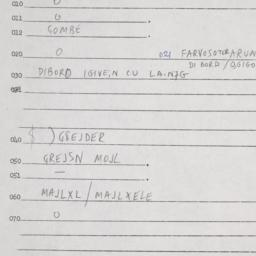 010 0
011 0
012 GOMBE
020 0 021 FARVOSOTOR
DI BORD
030 DIBORD IGIVE,N CU
031
040 GREJDER
050 GREJSN MOJL
051 —
060 MAJLXL / MAJLXELE
070 0